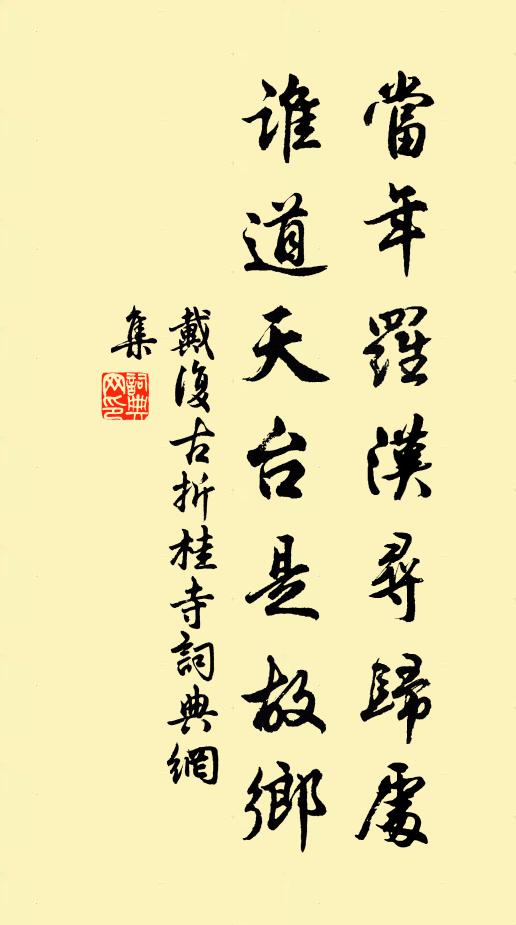 當年羅漢尋歸處
誰道天台是故鄉
戴復古折桂寺詞典網
集
詞典
网印